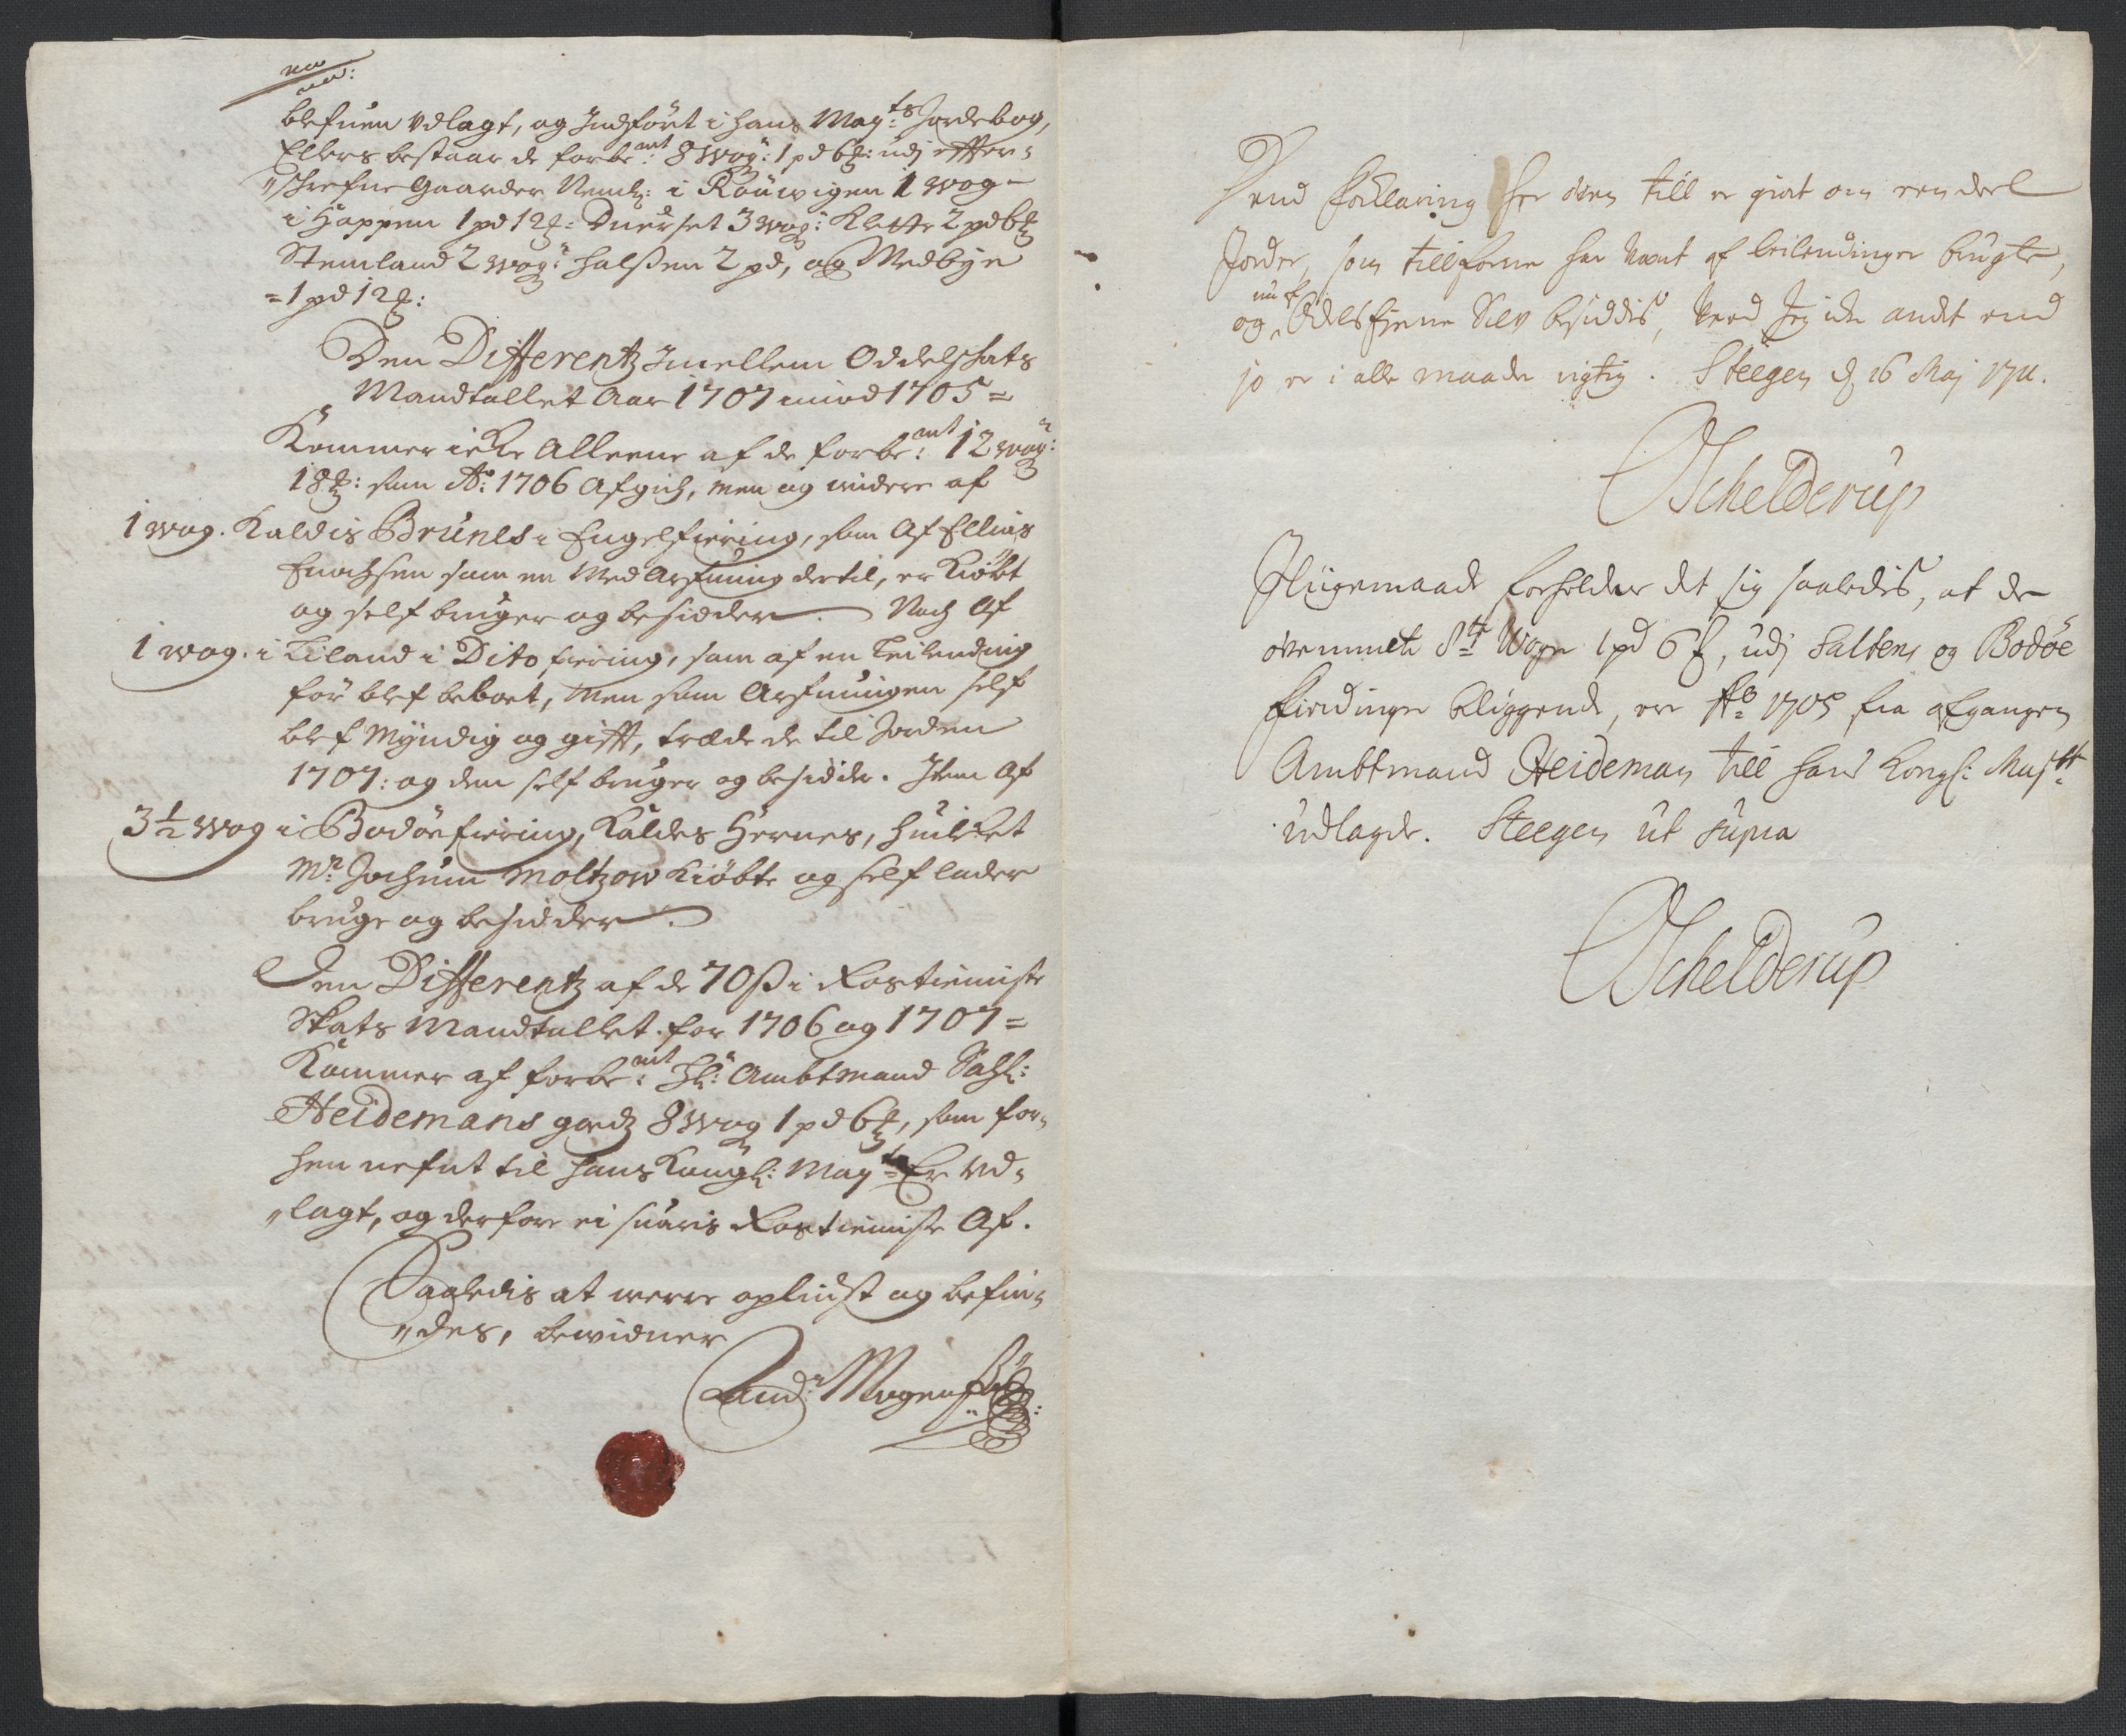 blefuen Vdlagt, og Indført i hans May:ts Jordebog,
Ellers bestaar de forbe:mt 8 Wog: 1 pd 6 ℔: udj effter-
schrefne Gaarder Neml: i Rauwigen 1 wog
i Hoppen 1 pd 12 ℔: Duerset 3 wog: Klette 2 pd 6 ℔
Stemland 2 wog: halsen 2 pd, og Medbye
1 pd 12 ℔:
Den Differentz Jmellem Oddelschats
Mandtallet Aar 1707 imod 1705
Kommer icke Alleene af de forbe:mt 12 wog:
18 ℔: som Ao: 1706 Afgich, men og widere af
1 wog. Kaldis Brunes i Engelfiering, som Af Ellias
Enochsen som en Med Arfuing dertil, er Kiøbt
og self bruger og besidder. Noch Af
1 wog. i Liland i Dito fiering, som af en Leilending
før blef beboet, Men som Arfuingen self
blef Myndig og gifft, træde de til Jorden
1707: og dem self bruger og besidder. Item Af
3½ Wog i Bodøefiering, Kaldes Hernes, huilket
Mr: Jochum Moltzow Kiøbte og self lader
bruge og besidder.
Den Differentz af de 70 ß i Rostieniste
Skats Mandtallet for 1706 og 1707
Kommer af forbe:mt Hr: Ambtmand Sahl:
Heidemans godz 8 Wog 1 pd 6 ℔, som for-
hen nefnt til hans Kongl: May:ts Er Vd-
lagt, og derfore ei suaris Rostieniste Af.
Saaledis at werre opliust og befin-
des, bewidner
And: Mogens
Dend forklaring her oven till er giort om een deel
Jorder, som tillforne har vært af leilendinger brugte,
og nu af Odels eierne Selv besiddis, veed Jeg icke andet end
jo er i alle maade rigtig. Steegen d 16 Maj 1711.
Schelderup
Jligemaade forholder det sig saaledis, at de
ovenmelte 8te Woger 1 pd 6 ℔, udj Salten og Bodøe
fierdinger beliggende, er Ao 1705 fra afgangen
Ambtmand Heideman till hans Kongl: Majtt:
udlagde. Steegen ut supra
Schelderup